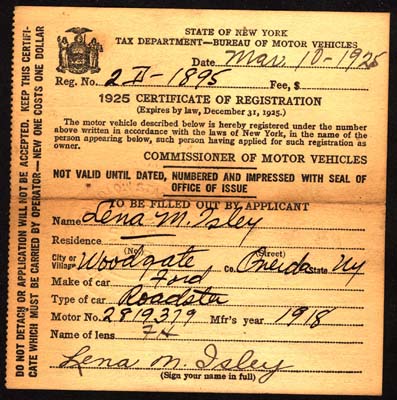 STATE OF NEW YORK
TAX DEPARTMENT—BUREAU OF MOTOR VEHICLES
Date Mar. 10-1925
Reg. No. 2D-1895 Fee, $
1925 CERTIFICATE OF REGISTRATION
(Expires by law, December 31, 1925.)
The motor vehicle described below is hereby registered under the number
above written in accordance with the laws of New York, in the name of the
person appearing below, such person having applied for such registration as
owner.
COMMISSIONER OF MOTOR VEHICLES
NOT VALID UNTIL DATED, NUMBERED AND IMPRESSED WITH SEAL OF
OFFICE OF ISSUE
TO BE FILLED OUT BY APPLICANT
Name Lena M. Isley
Residence
(No.) (Street)
City or Village Woodgate Co. Oneida State NY
Make of car Ford
Type of car Roadster
Motor No. 2919379 Mfr's year 1918
Name of lens
Lena M. Isley
(Sign your name in full)
DO NOT DETACH OR APPLICATION WILL NOT BE ACCEPTED. KEEP THIS CERTIFI-
CATE WHICH MUST BE CARRIED BY OPERATOR—NEW ONE COSTS ONE DOLLAR